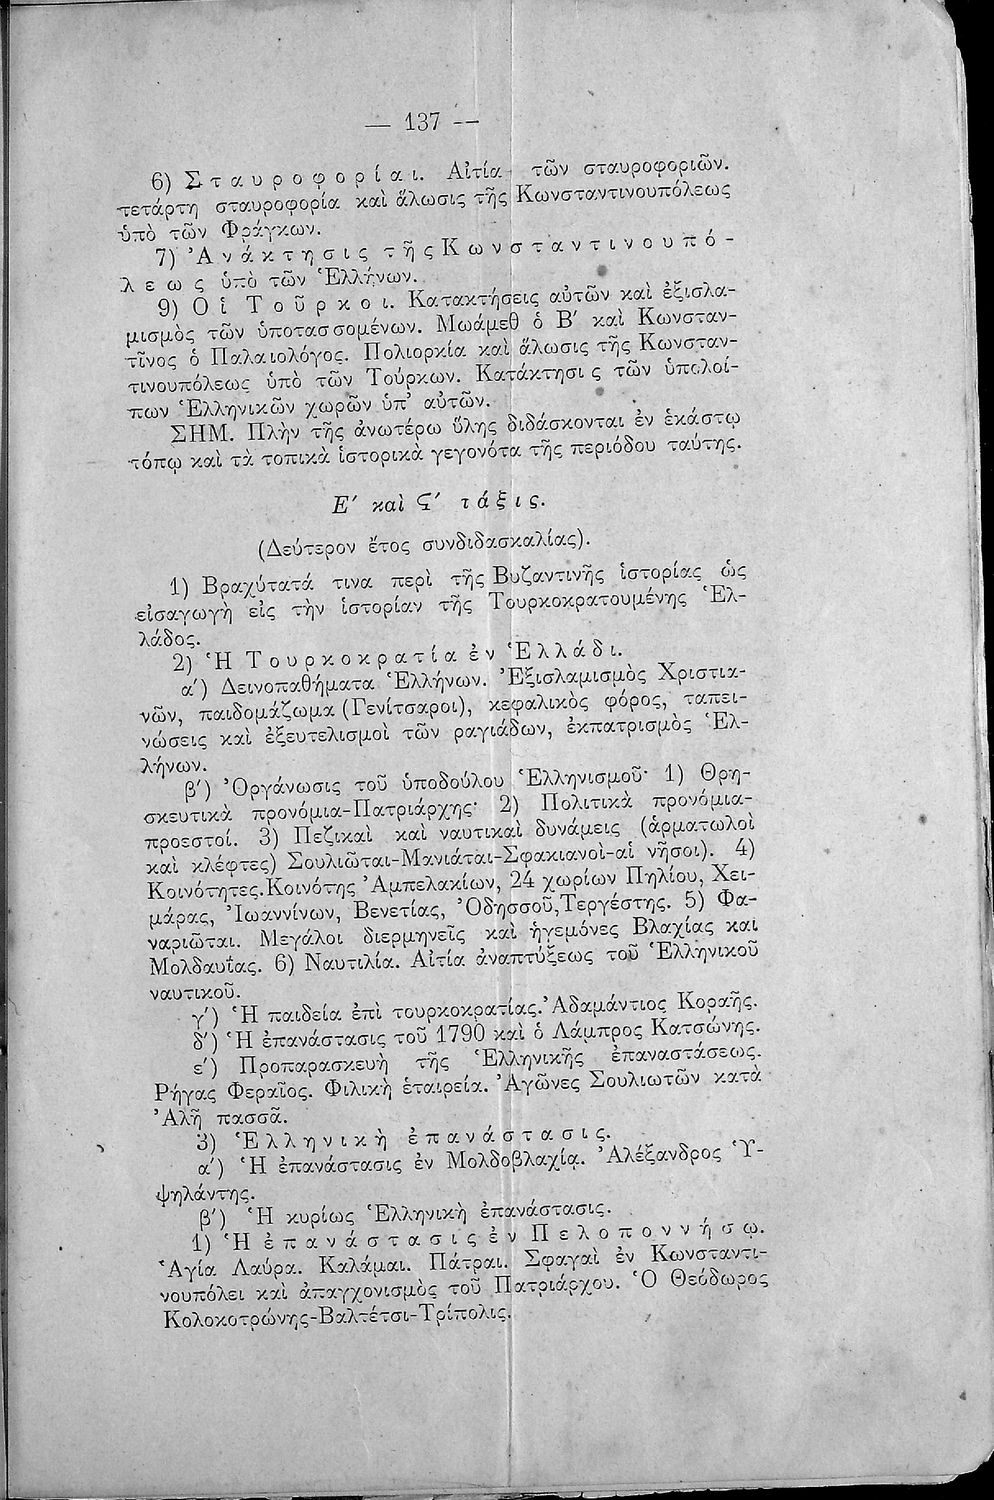 — 137 —
6) Σ τ α υ ρ ο φ ο ρ ί α ι. Αἰτία τῶν σταυροφοριῶν.
τετάρτη σταυροφορία καὶ ἅλωσις τῆς Κωνσταντινουπόλεως
ὑπὸ τῶν Φράγκων.
7) Ἀ ν ά κ τ η σ ι ς τ ῆ ς Κ ω ν σ τ α ν τ ι ν ο υ π ό -
λ ε ω ς ὑπὸ τῶν Ἑλλήνων.
9) Ο ἱ Τ ο ῦ ρ κ ο ι. Κατακτήσεις αὐτῶν καὶ ἐξισλα-
μισμὸς τῶν ὑποτασσομένων. Μωάμεθ ὁ Β′ καὶ Κωνσταν-
τῖνος ὁ Παλαιολόγος. Πολιορκία καὶ ἅλωσις τῆς Κωνσταν-
τινουπόλεως ὑπὸ τῶν Τούρκων. Κατάκτησι ς τῶν ὑπολοί-
πων Ἑλληνικῶν χωρῶν ὑπ’ αὐτῶν.
ΣΗΜ. Πλὴν τῆς ἀνωτέρω ὕλης διδάσκονται ἐν ἑκάστῳ
τόπῳ καὶ τὰ τοπικὰ ἱστορικὰ γεγονότα τῆς περιόδου ταύτης.
Ε′ καὶ Ϛ′ τ ά ξ ι ς.
(Δεύτερον ἔτος συνδιδασκαλίας).
1) Βραχύτατά τινα περὶ τῆς Βυζαντινῆς ἱστορίας ὡς
εἰσαγωγὴ εἰς τὴν ἱστορίαν τῆς Τουρκοκρατουμένης Ἑλ-
λάδος.
2) Ἡ Τ ο υ ρ κ ο κ ρ α τ ί α ἐ ν Ἑ λ λ ά δ ι.
α′) Δεινοπαθήματα Ἑλλήνων. Ἐξισλαμισμὸς Χριστια-
νῶν, παιδομάζωμα (Γενίτσαροι), κεφαλικὸς φόρος, ταπει-
νώσεις καὶ ἐξευτελισμοὶ τῶν ραγιάδων, ἐκπατρισμὸς Ἑλ-
λήνων.
β′) Ὀργάνωσις τοῦ ὑποδούλου Ἑλληνισμοῦ· 1) Θρη-
σκευτικὰ προνόμια-Πατριάρχης· 2) Πολιτικὰ προνόμια-
προεστοί. 3) Πεζικαὶ καὶ ναυτικαὶ δυνάμεις (ἁρματωλοὶ
καὶ κλέφτες) Σουλιῶται-Μανιάται-Σφακιανοὶ-αἱ νῆσοι). 4)
Κοινότητες.Κοινότης Ἀμπελακίων, 24 χωρίων Πηλίου, Χει-
μάρας, Ἰωαννίνων, Βενετίας, Ὀδησσοῦ,Τεργέστης. 5) Φα-
ναριῶται. Μεγάλοι διερμηνεῖς καὶ ἡγεμόνες Βλαχίας και
Μολδαυΐας. 6) Ναυτιλία. Αἰτία ἀναπτύξεως τοῦ Ἑλληνικοῦ
ναυτικοῦ.
γ′) Ἡ παιδεία ἐπὶ τουρκοκρατίας. Ἀδαμάντιος Κοραῆς.
δ′) Ἡ ἐπανάστασις τοῦ 1790 καὶ ὁ Λάμπρος Κατσώνης.
ε′) Προπαρασκευὴ τῆς Ἑλληνικῆς ἐπαναστάσεως.
Ρήγας Φεραῖος. Φιλικὴ ἑταιρεία. Ἀγῶνες Σουλιωτῶν κατὰ
Ἀλῆ πασσᾶ.
3) Ἑ λ λ η ν ι κ ὴ ἐ π α ν ά σ τ α σ ι ς.
α′) Ἡ ἐπανάστασις ἐν Μολδοβλαχίᾳ. Ἀλέξανδρος Ὑ-
ψηλάντης.
β′) Ἡ κυρίως Ἑλληνικὴ ἐπανάστασις.
1) Ἡ ἐ π α ν ά σ τ α σ ι ς ἐ ν Π ε λ ο π ο ν ν ή σ ῳ.
Ἁγία Λαύρα. Καλάμαι. Πάτραι. Σφαγαὶ ἐν Κωνσταντι-
νουπόλει καὶ ἀπαγχονισμὸς τοῦ Πατριάρχου. Ὁ Θεόδωρος
Κολοκοτρώνης-Βαλτέτσι-Τρίπολις.